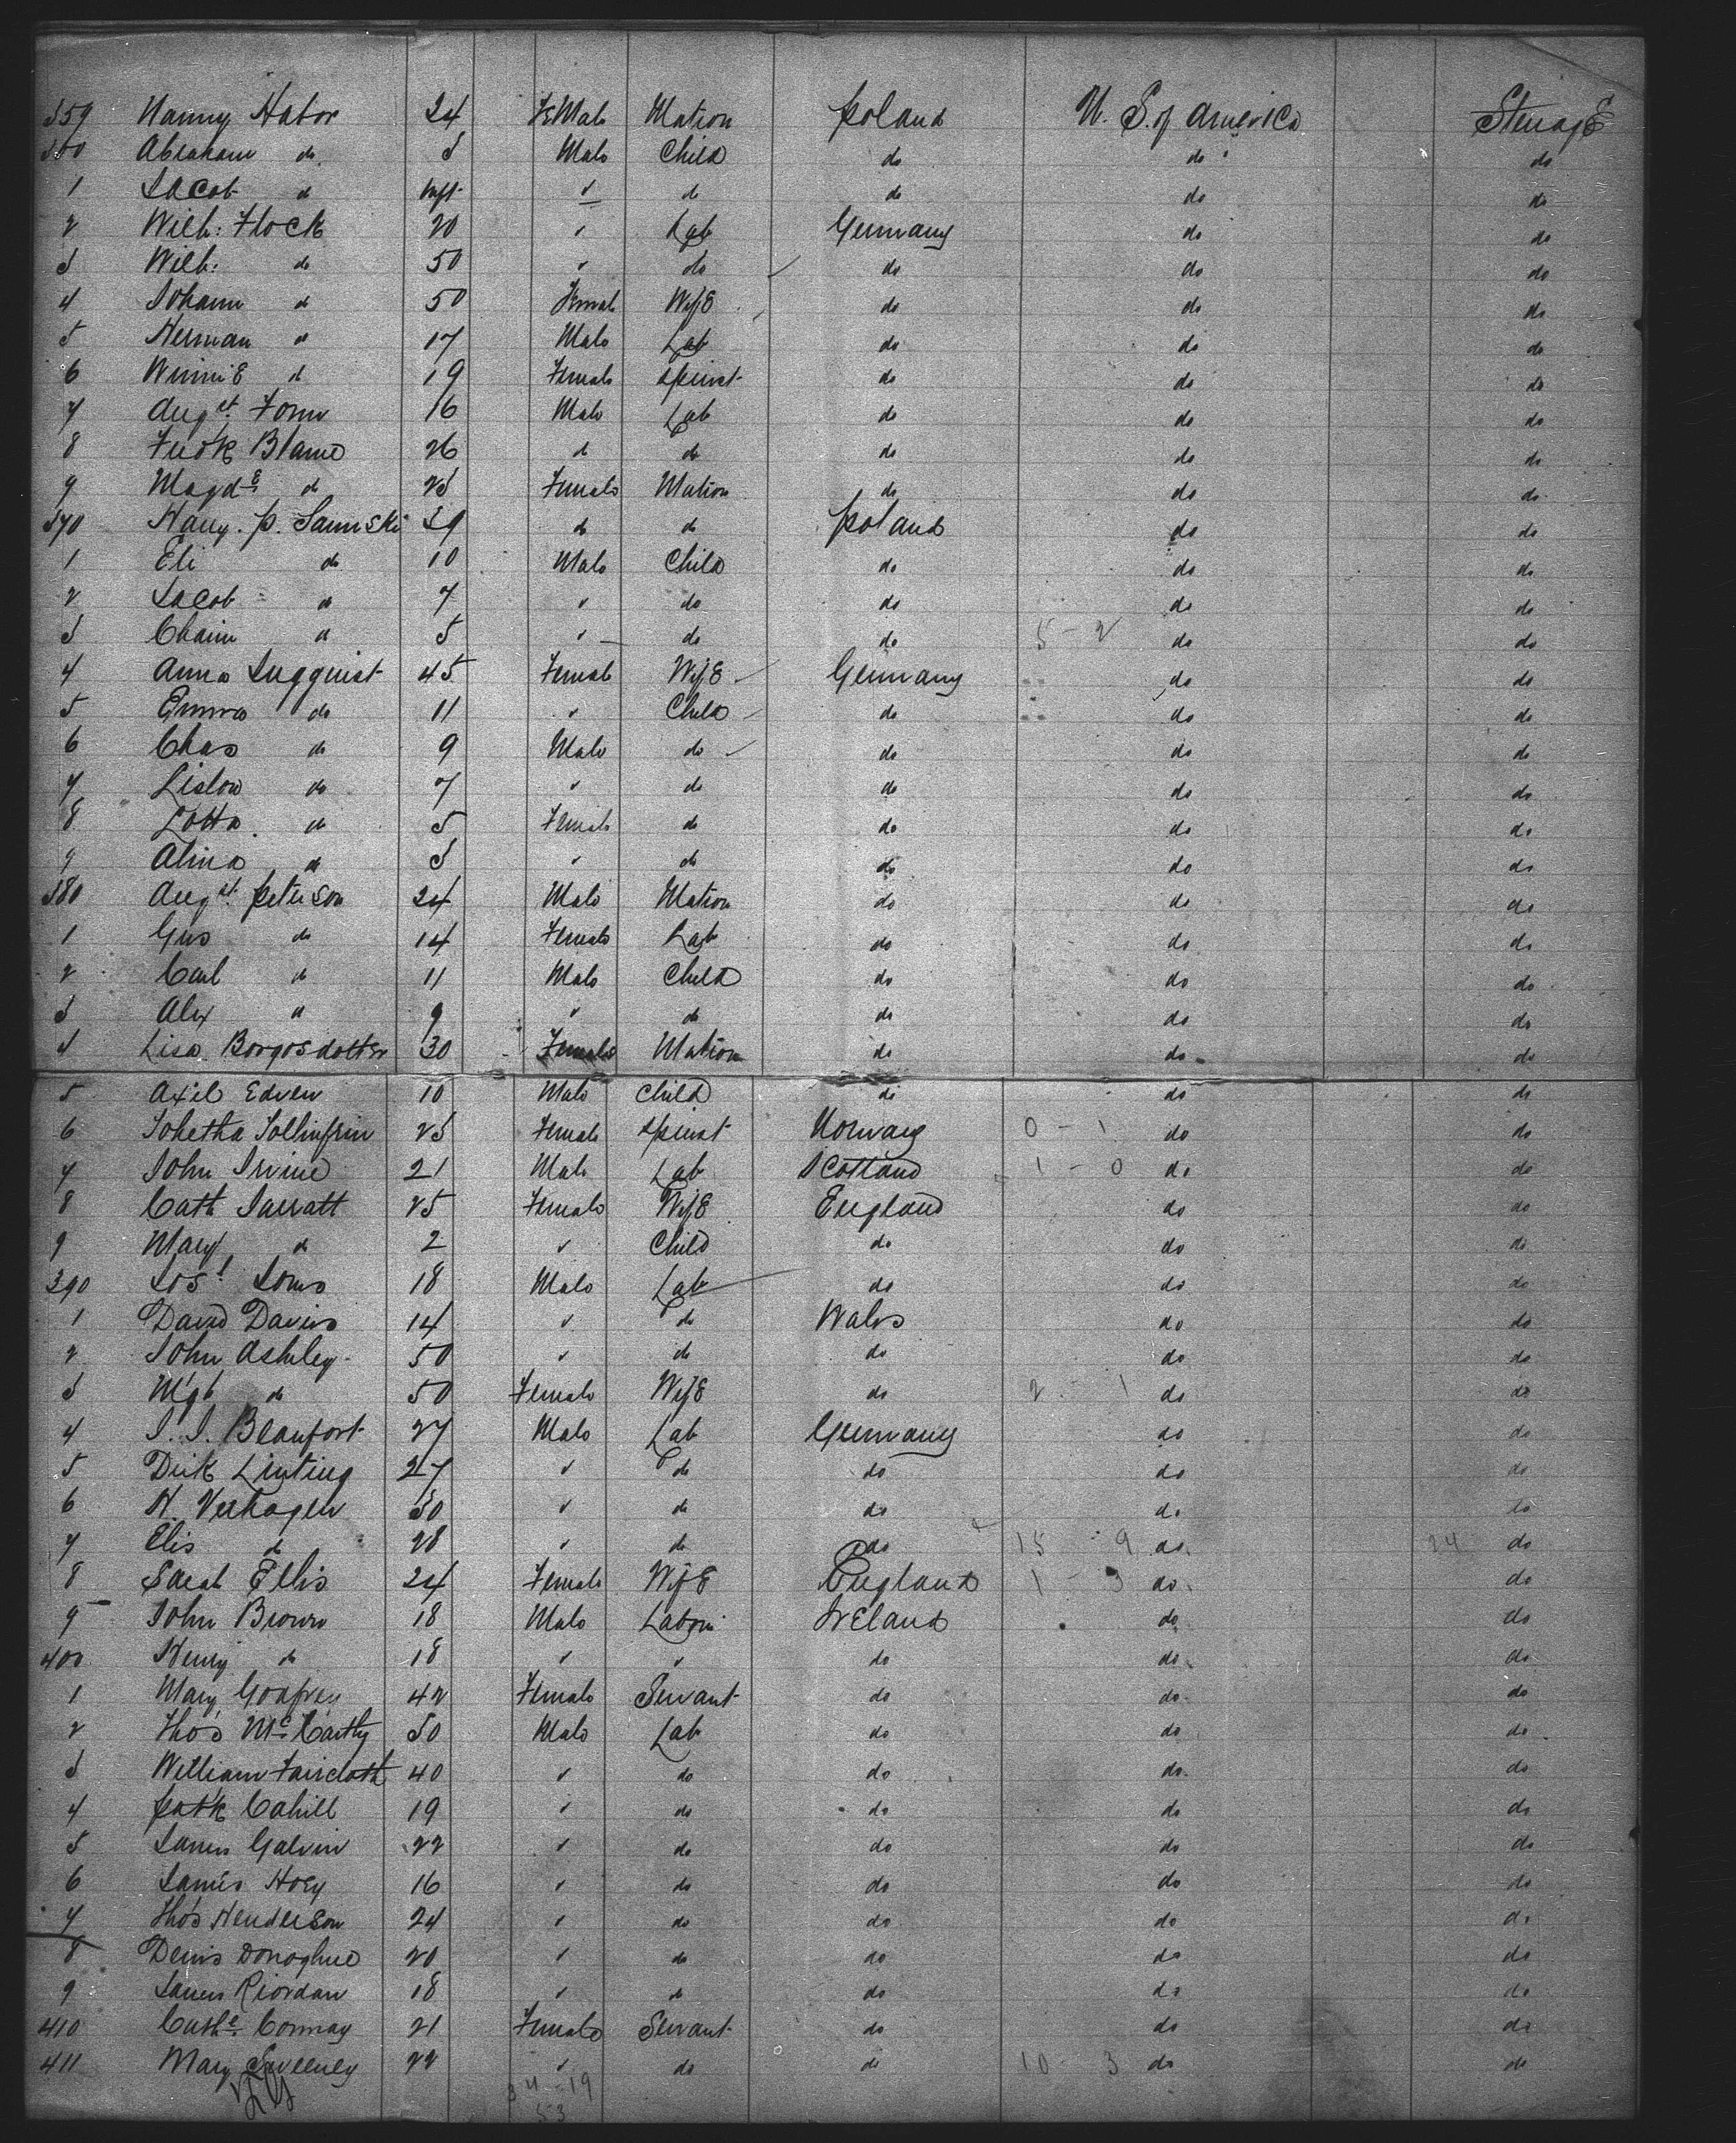 359 Nanny Habor 24 FeMale Matron Poland U. S. of America SteragE
360 Abraham do 3 Male Child do do do
1 Jacob do Inft " do do do do
2 Wilh: Flock 20 " Lab Germany do do
3 Wilh: do 50 " do do do do
4 Johann do 50 Female WifE do do do
5 Herman do 17 Male Lab do do do
6 WinniE do 19 Female Spinst do do do
7 Augst 16 Male Lab do do do
8 Fredk 26 do do do do do
9 Magde do 23 Female Matron do do do
370 39 do do Poland do do
1 Eli do 10 Male Child do do do
2 Jacob do 7 " do do do do
3 Chaim do 5 " do do 5 - 2 do do
4 Anna Lugquist 45 Female WifE Germany do do
5 Emma do 11 " Child do do do
6 Chas do 9 Male do do do do
7 do 7 " do do do do
8 Lotta do 5 Female do do do do
9 Alina do 3 " do do do do
380 Augst Peterson 24 Male Matron do do do
1 Gus do 14 Female Lab do do do
2 Carl do 11 Male Child do do do
3 Alex do 9 " do do do do
4 Lisa Borgosdotter 30 Female Matron do do do
5 Axel Edven 10 Male Child do do do
6 23 Female Spinst Norway 0 - 1 do do
7 John Irvine 21 Male Lab Scotland 1 - 0 do do
8 Cath Jarratt 25 Female WifE England do do
9 Mary do 2 " Child do do do
390 Josh Jones 18 Male Lab do do do
1 David Davies 14 " do Wales do do
2 John Ashley 50 " do do do do
3 Mgt do 50 Female WifE do 2 - 1 do do
4 J. J. Beaufort 27 Male Lab Germany do do
5 Dirk Linting 27 " do do do do
6 H. Verhagen 30 " do do do do
7 Elis do 28 " do do 15 9 do 24 do
8 Sarah Ellis 24 Female WifE England 1 - 3 do do
9 John Brown 18 Male Labour IrEland do do
400 Henry do 18 " " do do do
1 Mary Godfrey 42 Female Servant do do do
2 Thos McCarthy 50 Male Lab do do do
3 William Faircloth 40 " do do do do
4 Patk Cahill 19 " do do do do
5 James Galvin 22 " do do do do
6 James Hoey 16 " do do do do
7 Thos Henderson 24 " do do do do
8 Denis Donoghue 20 " do do do do
9 James Riordan 18 " do do do do
410 Cathe Conway 21 Female Servant do do do
411 Mary Sweeney 22 " do do 10 - 3 do do
34 - 19
53